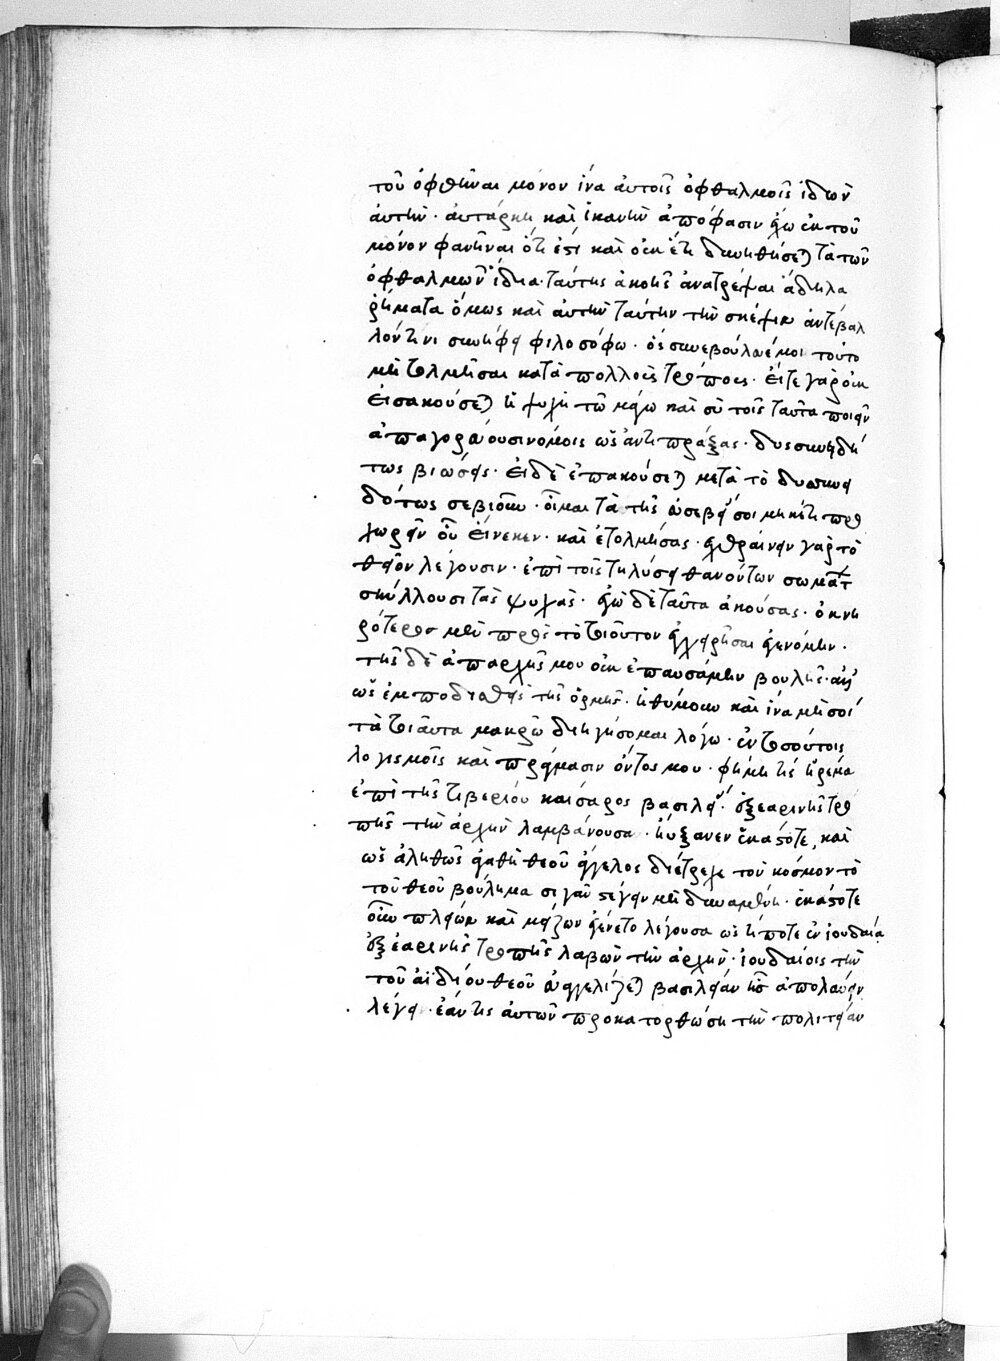 τοῦ ὀφθῆναι μόνον ἵνα αὐτοῖς ὀφθαλμοῖς ἰδὼν
αὐτὴν· αὐτάρκη καὶ ἱκανὴν ἀπόφασιν ἔχω ἐκ τοῦ
μόνον φανῆναι ὅτι ἐστὶ καὶ οὐκ ἔτι δυνηθήσεται τὰ τῶν
ὀφθαλμῶν ἴδια· ταύτης ἀκοῆς ἀνατρέψαι ἄδηλα
ῥήματα ὅμως καὶ αὐτὴν ταύτην τὴν σκέψιν ἀντέβαλ
λόν τινι συνήθει φιλοσόφω· ὃς συνεβούλευέ μοι τοῦτο
μὴ τολμῆσαι κατὰ πολλοὺς τρόπους· εἴτε γὰρ οὐκ
εἰσακούσεται ἡ ψυχὴ τῶ μάγω καὶ σὺ τοῖς ταῦτα ποιεῖν
ἀπαγορεύουσι νόμοις ὡς ἀντιπράξας· δυσσυνειδή
τως βιώσεις· εἰ δὲ ἐπακούσεται μετὰ τὸ δυσσυνει
δότως σε βιοῦν· οἶμαι τὰ τῆς εὐσεβείας σοι μηκέτι προ
χωρεῖν οὗ εἵνεκεν· καὶ ἐτόλμησας· ἐχθραίνειν γὰρ τὸ
θεῖον λέγουσιν· ἐπὶ τοῖς τῇ λύσει θανόντων σωμάτων
σκύλλουσι τὰς ψυχάς· ἐγὼ δὲ ταῦτα ἀκούσας· ὀκνη
ρότερος μὲν πρὸς τὸ τοιοῦτον ἐγχειρῆσαι ἐγενόμην·
τῆς δὲ ἀπαρχῆς μου οὐκ ἐπαυσάμην βουλῆς·
ὡς ἐμποδισθεὶς τῆς ὁρμῆς· ἠθύμουν καὶ ἵνα μή σοι
τὰ τοιαῦτα μακρῶ διηγήσομαι λόγω· ἐν τοσούτοις
λογισμοῖς καὶ πράγμασιν ὄντος μου· φήμη τις ἠρέμα
ἐπὶ τῆς τιβερίου καίσαρος βασιλείας ἐξ ἐαρινῆς τρο
πῆς τὴν ἀρχὴν λαμβάνουσα· ηὔξανεν ἑκάστοτε, καὶ
ὡς ἀληθῶς ἀγαθὴ θεοῦ ἄγγελος διέτρεχε τὸν κόσμον τὸ
τοῦ θεοῦ βούλημα σιγῆ στέγειν μὴ δυναμένη· ἑκάστοτε
οὖν πλείων καὶ μείζων ἐγένετο λέγουσα ὡς τίς ποτε ἐν ἰουδαία
ἐξ ἐαρινῆς τροπῆς λαβὼν τὴν ἀρχὴν· ἰουδαίοις τὴν
τοῦ ἀϊδίου θεοῦ εὐαγγελίζεται βασιλείαν ἧς ἀπολαύειν
λέγει· ἐάν τις αὐτῶν προκατορθώση τὴν πολιτείαν